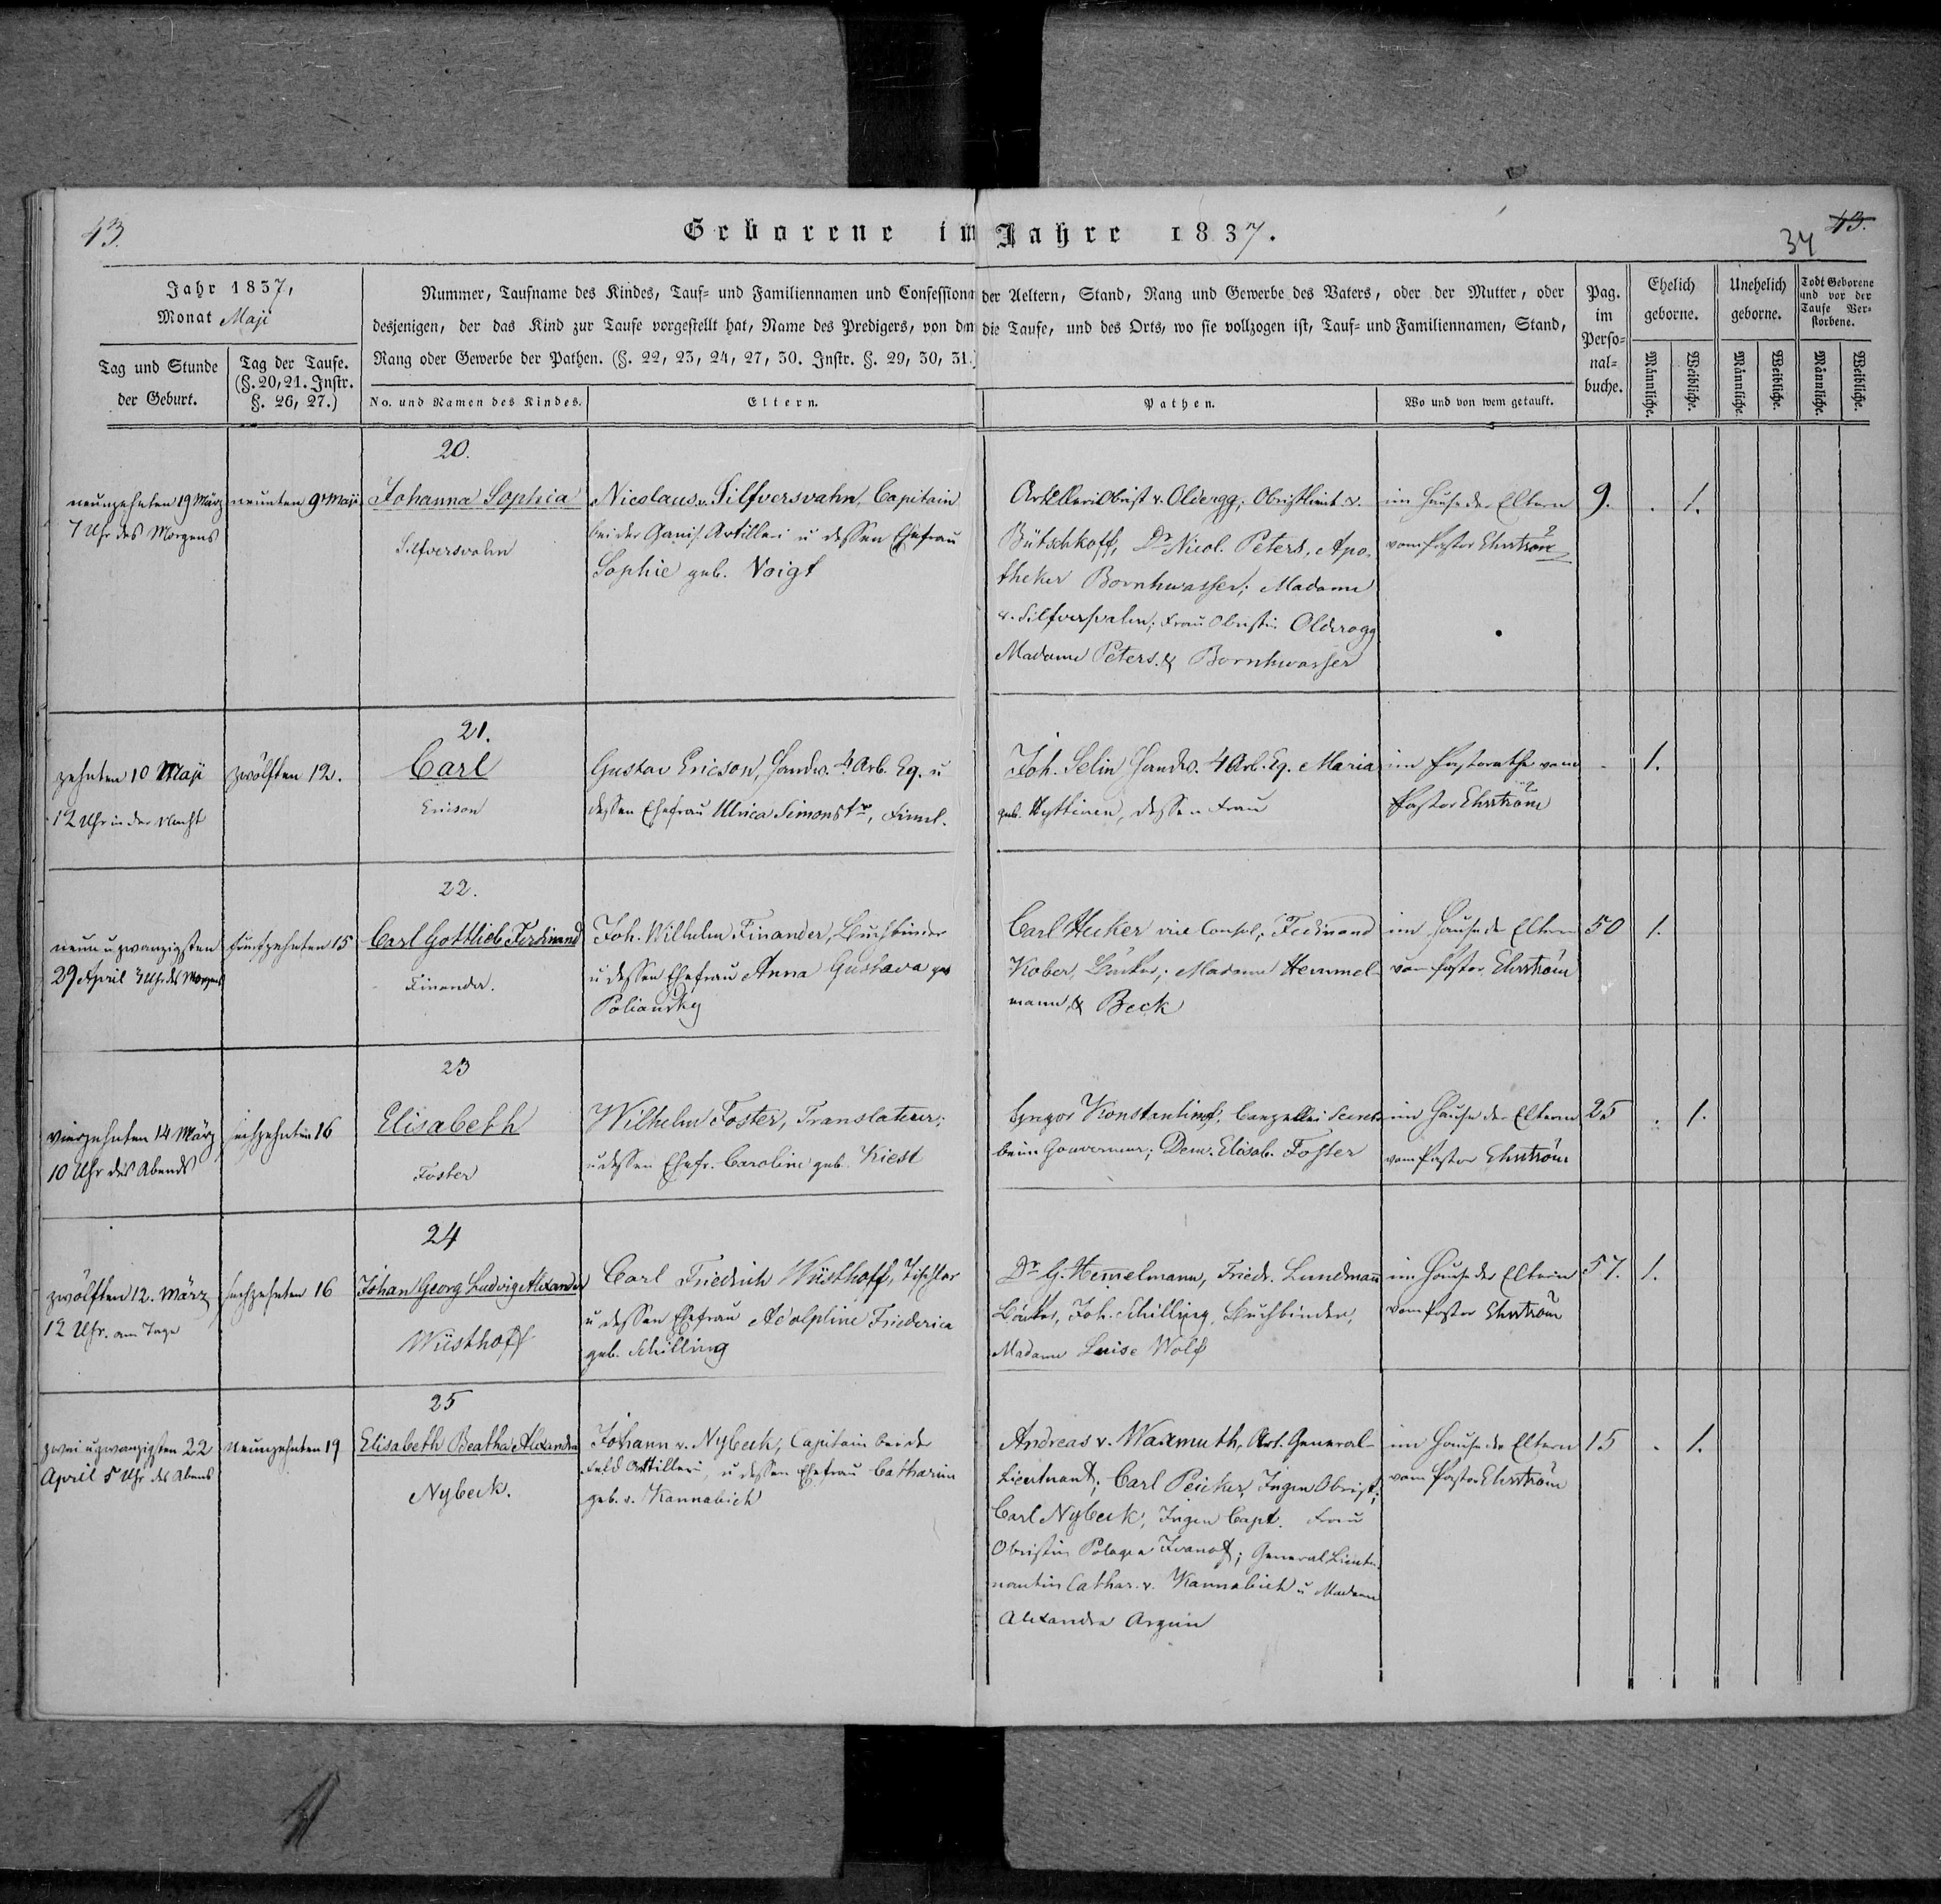 43.
Geborene im Jahre 1837.
43.
34
Jahr 1837,
Monat Maji
Tag und Stunde
der Geburt.
Tag der Taufe.
(§. 20, 21. Instr.
§. 26, 27.)
Nummer, Taufname des Kindes, Tauf- und Familiennamen und Confession der Aeltern, Stand, Rang und Gewerbe des Vaters, oder der Mutter, oder
desjenigen, der das Kind zur Taufe vorgestellt hat, Name des Predigers, von dem die Taufe, und des Orts, wo sie vollzogen ist, Tauf- und Familiennamen, Stand,
Rang oder Gewerbe der Pathen. (§. 22, 23, 24, 27, 30. Instr. §. 29, 30, 31.)
No. und Namen des Kindes.
Eltern.
Pathen.
Wo und von wem getauft.
Pag.
im
Perso-
nal-
buche.
Ehelich
geborne.
Unehelich
geborne.
Todt Geborene
und vor der
Taufe Ver-
storbene.
Männliche.
Weibliche.
Männliche.
Weibliche.
Männliche.
Weibliche.
neunzehnten 19 März
7 Uhr des Morgens
neunten 9 Maji
20.
Johanna Sophia
Silfversvahn
Nicolaus v. Silfversvahn, Capitain
bei der Garnis. Artilleri u dessen Ehefrau
Sophie geb. Voigt
Artilleri Obrist v. Olderogg, Obristlieut. v.
Bütschkoff, Dr Nicol. Peters, Apo-
theker Bornhwasser; Madame
v. Silfversvahn; Frau Obristin Olderogg
Madame Peters. & Bornhwasser
im Hause der Eltern
vom Pastor Ehrström
9.
. 1.
zehnten 10 Maji
12 Uhr in der Nacht
zwölften 12.
21.
Carl
Ericson
Gustav Ericson, Handw. 4 Arb. Eq. u
dessen Ehefrau Ulrica Simonstr, Finnl.
Joh. Selin Handw. 4 Arb. Eq. Maria
geb. Hyttinen, dessen Frau
im Pastorathe vom
Pastor Ehrström
- 1.
neun u zwanzigsten
29 April 3 Uhr des Morgens
funfzehnten 15
22.
Carl Gottlieb Ferdinand
Finander.
Joh. Wilhelm Finander, Buchbinder
u dessen Ehefrau Anna Gustava geb
Poliansky
Carl Hecker vice Consul, Ferdinand
Kober, Bäcker; Madame Hemmel-
mann, & Beck
im Hause der Eltern
vom Pastor Ehrström
50 1.
vierzehnten 14 März
10 Uhr des Abends
sechzehnten 16
23
Elisabeth
Foster
Wilhelm Foster, Translateur;
u dessen Ehefr. Caroline geb. Kiest
Gregor Konstantinof, Canzellei Secret.
beim Gouverneur; Dem. Elisab. Foster
im Hause der Eltern
vom Pastor Ehrström
25 . 1.
zwölften 12. März
12 Uhr. am Tage
sechzehnten 16
24
Johan Georg Ludvig Alexander
Wüsthoff
Carl Friedrich Wüsthoff, Tischler
u dessen Ehefrau Adolphine Friederica
geb. Schilling
Dr G. Hem̅elmann, Friedr. Lundmann
Bäcker, Joh. Schilling, Buchbinder,
Madame Luise Wolf
im Hause der Eltern
vom Pastor Ehrström
57. 1.
zwei u zwanzigsten 22
April 5 Uhr des Abends
Neunzehnten 19
25
Elisabeth Beatha Alexandra
Nybeck.
Johann v. Nybeck, Capitain bei der
Feld Artilleri, u dessen Ehefrau Catharina
geb. v. Kannabich
Andreas v. Waxmuth, Art. General-
Lieutnant; Carl Peuker, Ingen Obrist;
Carl Nybeck, Ingen Capt. Frau
Obristin Pelagea Ivanof; General Lieute-
nantin Cathar. v. Kannabich u Madame
Alexandra Argun
im Hause der Eltern
vom Pastor Ehrström
15 . 1.